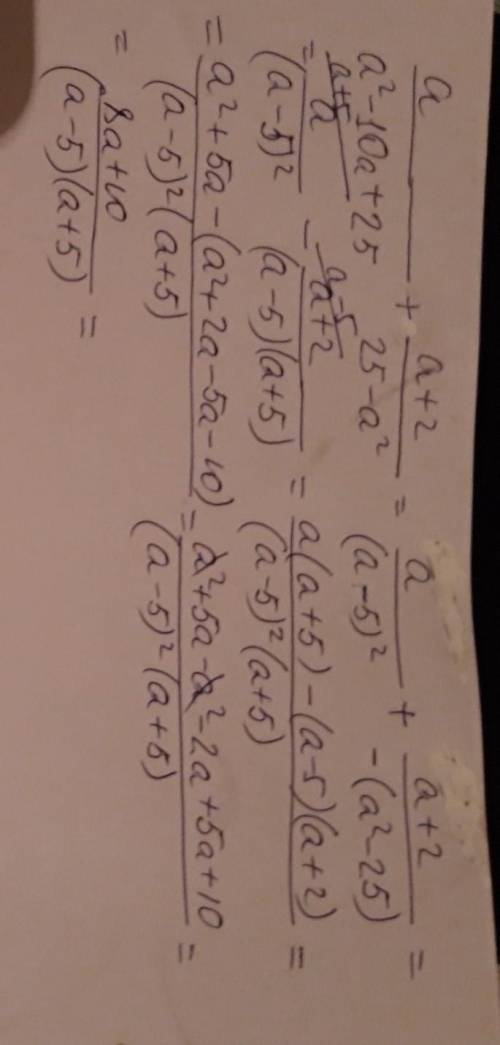 a/(a²-10a+25) + (a+2)/(25-a²) = a/(a-5)² + (a+2)/(-(a²-25)) =
= a/(a-5)² (a+5) - (a+2)/((a-5)(a+5)) (a-5) = (a(a+5)-(a-5)(a+2))/((a-5)²(a+5)) =
= (a²+5a-(a²+2a-5a-10))/((a-5)²(a+5)) = (a²+5a-a²-2a+5a+10)/((a-5)²(a+5)) =
= (8a+10)/((a-5)(a+5)) =